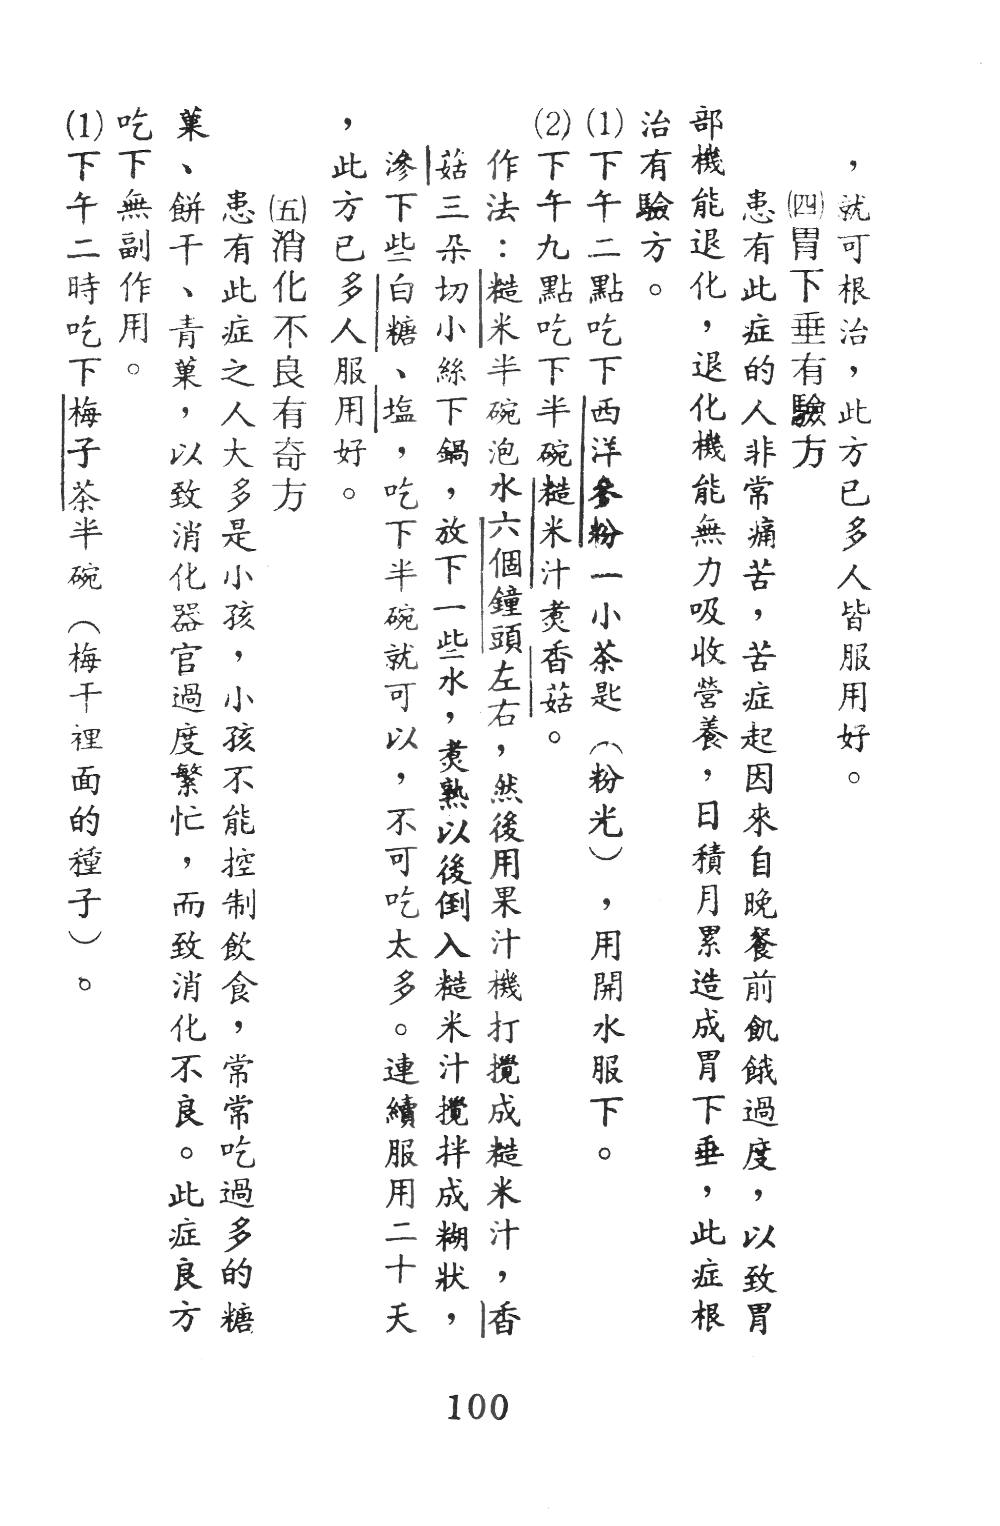 ，就可根治，此方已多人皆服用好。
㈣胃下垂有驗方
患有此症的人非常痛苦，苦症起因來自晚餐前飢餓過度，以致胃
部機能退化，退化機能無力吸收營養，日積月累造成胃下垂，此症根
治有驗方。
(1)下午二點吃下西洋參粉一小茶匙（粉光），用開水服下。
(2)下午九點吃下半碗糙米汁煑香菇。
作法：糙米半碗泡水六個鐘頭左右，然後用果汁機打攪成糙米汁，香
菇三朵切小絲下鍋，放下一些水，煑熟以後倒入糙米汁攪拌成糊狀，
滲下些白糖、塩，吃下半碗就可以，不可吃太多。連續服用二十天
，此方已多人服用好。
㈤消化不良有奇方
患有此症之人大多是小孩，小孩不能控制飲食，常常吃過多的糖
菓、餅干、青菓，以致消化器官過度繁忙，而致消化不良。此症良方
吃下無副作用。
(1)下午二時吃下梅子茶半碗（梅干裡面的種子）。
100